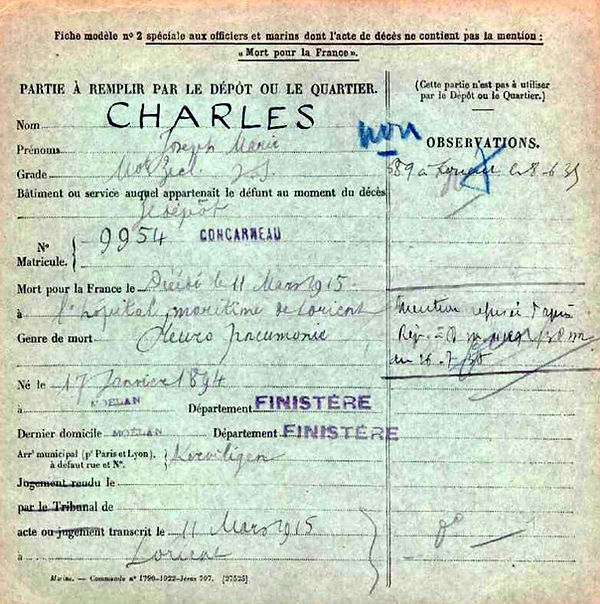 Fiche modèle nº 2 spéciale aux officiers et marins dont l'acte de décès ne contient pas la mention :
« Mort pour la France ».
PARTIE À REMPLIR PAR LE DÉPÔT OU LE QUARTIER.
(Cette partie n'est pas à utiliser
par le Dépôt ou le Quartier.)
Nom CHARLES
non
Prénoms Joseph Marie
OBSERVATIONS.
Grade
Bâtiment ou service auquel appartenait le défunt au moment du décès
dépôt
Nº
Matricule. 9954 CONCARNEAU
Mort pour la France le Décédé le 11 Mars 1915
à l'hôpital maritime de Lorient
Genre de mort Pleuro pneumonie
mention refusée d'après
du 26-7-
Né le 17 Janvier 1894
à MOËLAN Département FINISTÈRE
Dernier domicile MOËLAN Département FINISTÈRE
Arrt municipal (pr Paris et Lyon),
à défaut rue et Nº. Kerviligen
Jugement rendu le
par le Tribunal de
acte ou jugement transcrit le 11 Mars 1915
à Lorient
Marine. — Commande nº 1790-1922-Jérus 707. [27525]